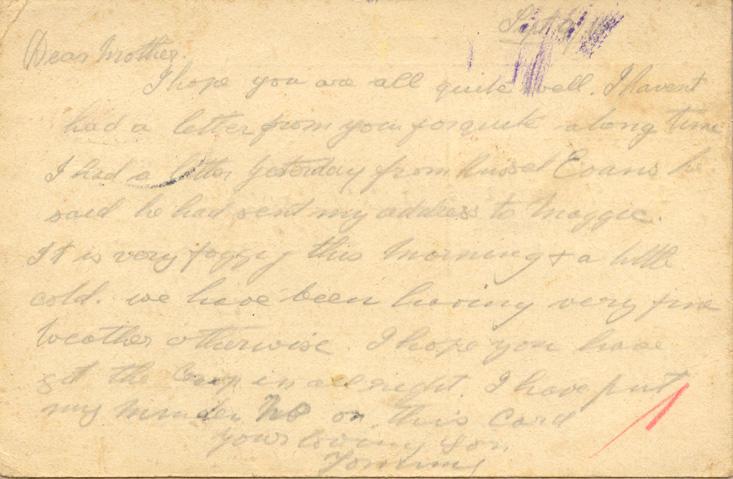 Sept 9
Dear Mother,
I hope you are all quite well. I havent
had a letter from you for quite along time
I had a letter yesterday from Russel Evans he
said he had sent my address to Maggie.
It is very foggy this morning + a little
cold. we have been having very fine
Weather otherwise. I hope you have
got the Crop in all right. I have put
my No on this Card
Your loving Son
Tommy